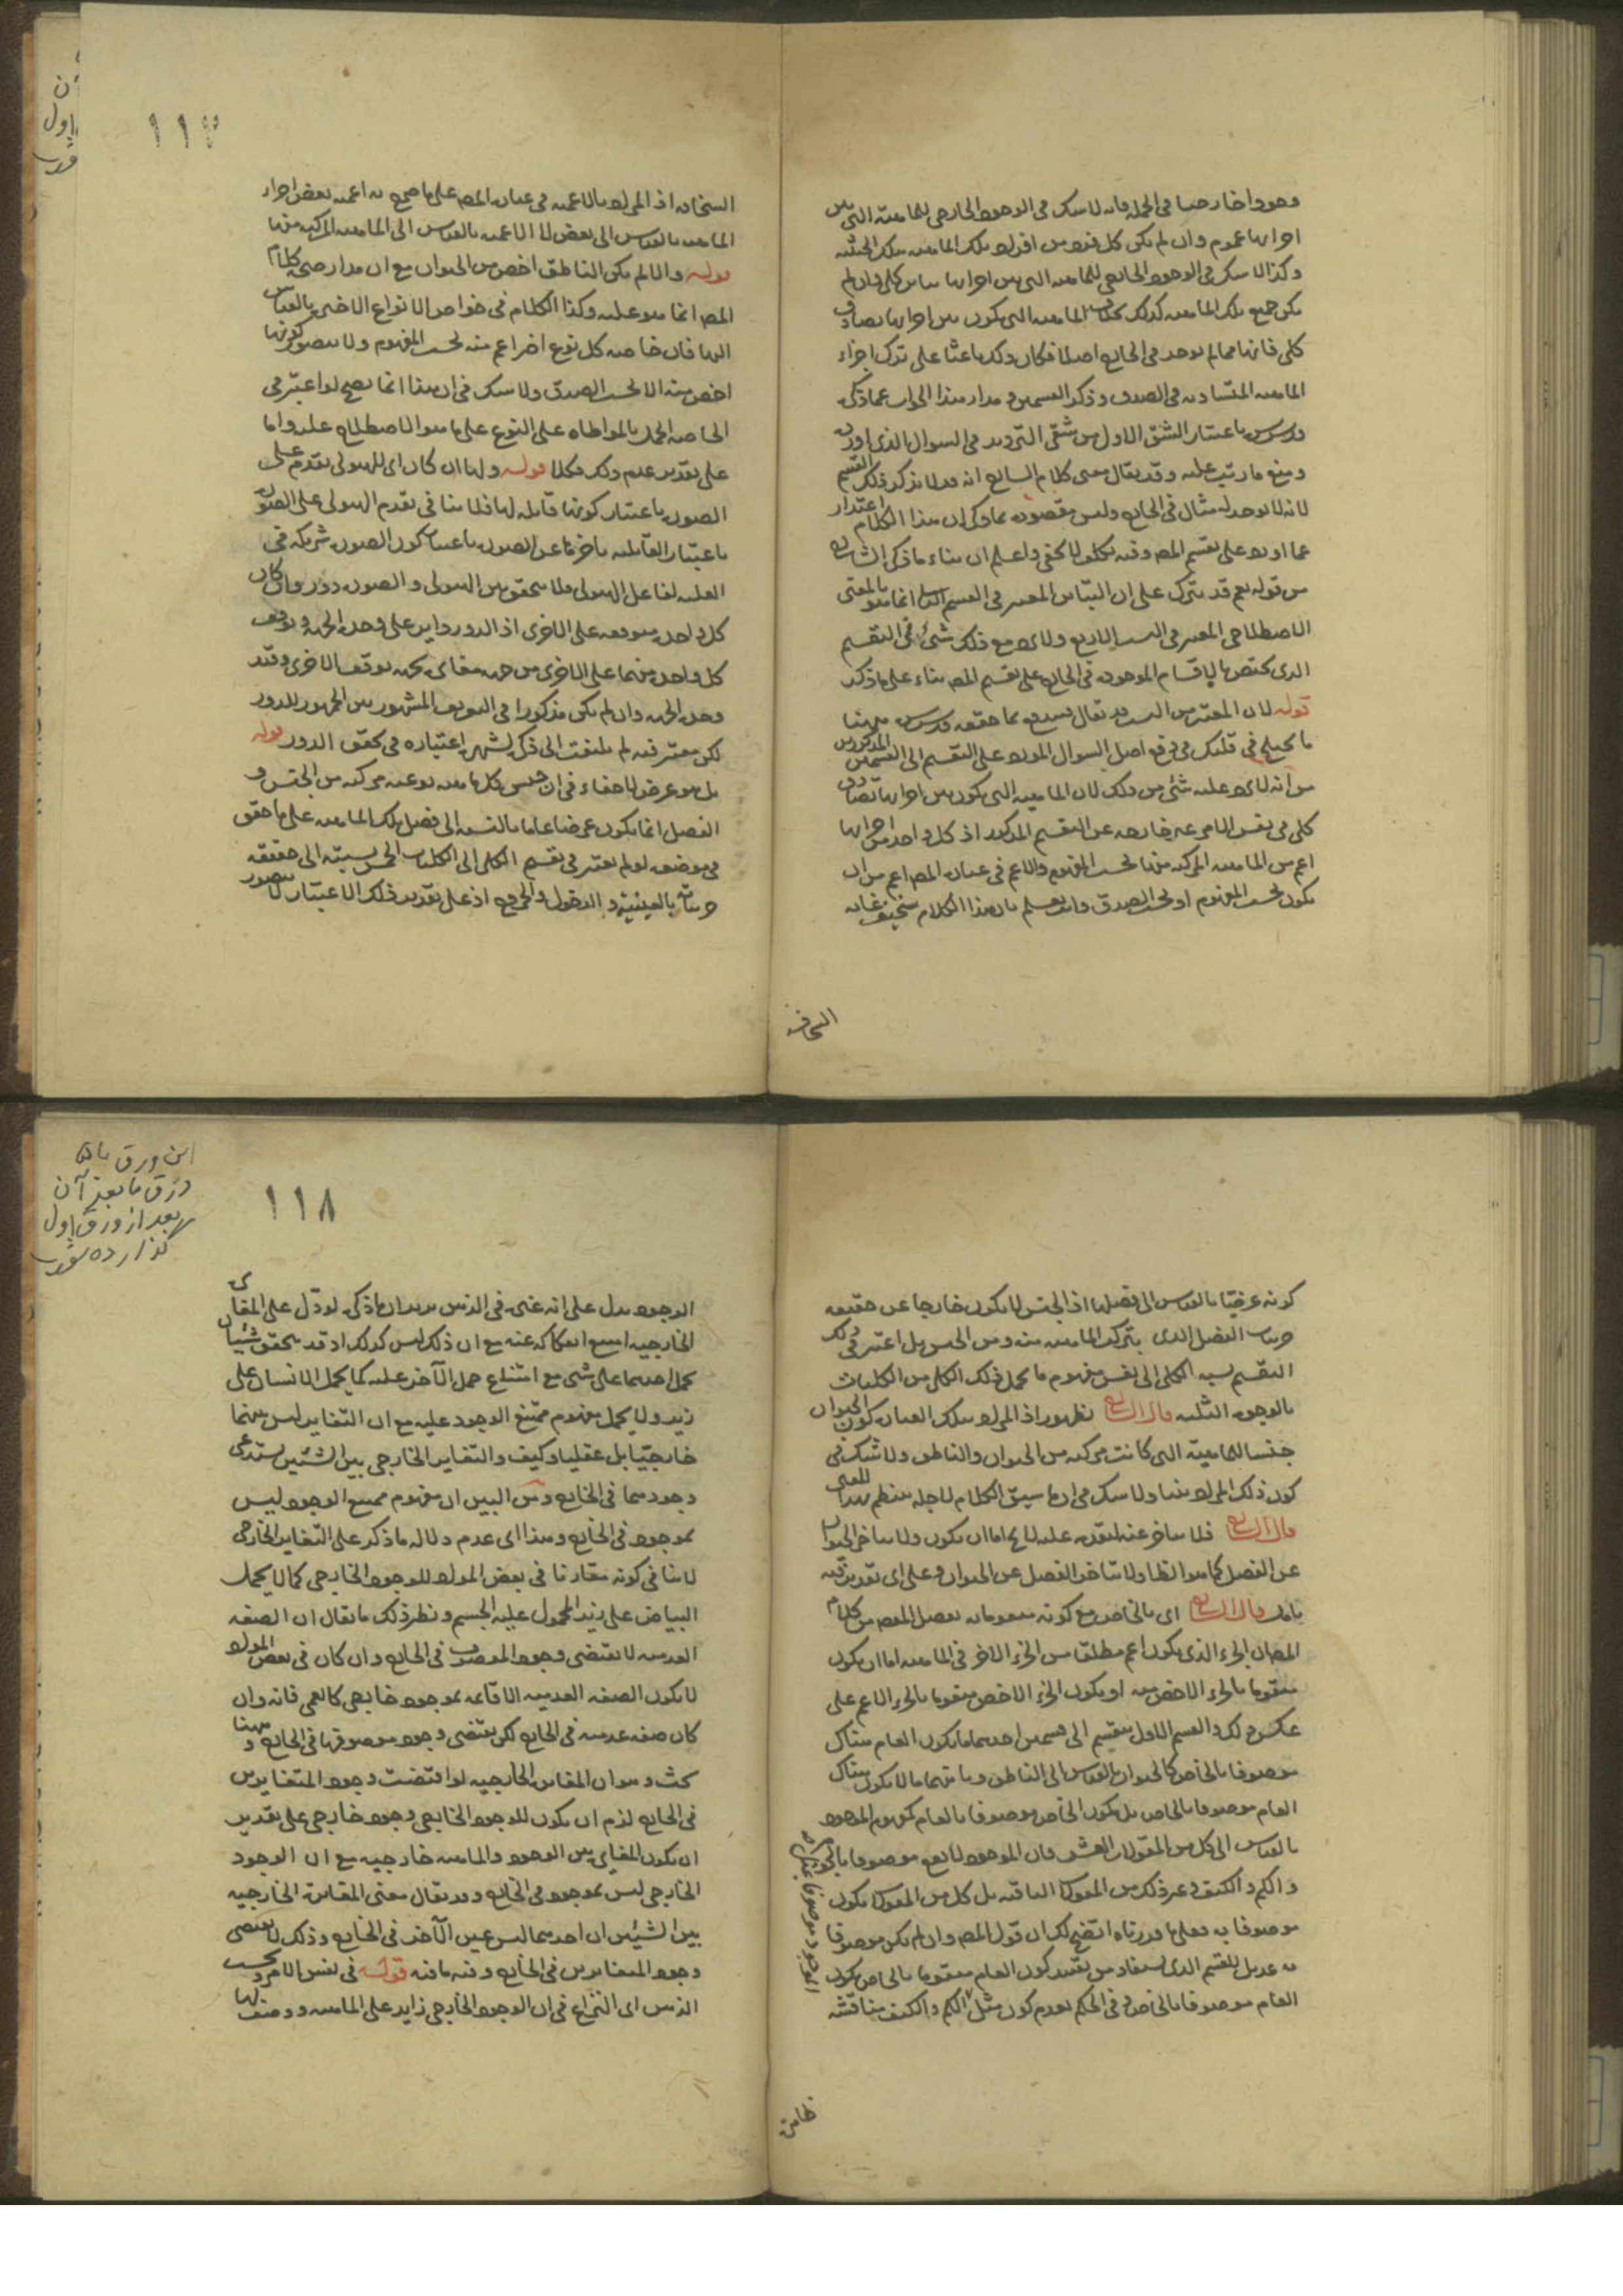 وجودا خارجيا في الجملة فانه لا شك في الوجود الخارجي للماهية التي بين
اجزائها عموم وان لم يكن كل فرد من افراد تلك الماهية بتلك الحيثية
وكذا لا شك في الوجود الخارجي للماهية التي بين اجزائها تباين كلي وان لم
يكن جميع تلك الماهية كذلك بخلاف الماهية التي يكون بين اجزائها تصادق
كلي فانها مما لم يوجد في الخارج اصلا فكان ذلك باعثا على ترك اجزاء
الماهية المتساوية في الصدق وذكر القسمين ومدار هذا الجواب عما ذكره
قدس سره باعتبار الشق الاول من شقي الترديد في السوال الذي اورده
ومنع ما رتب عليه وقد يقال معنى كلام الشارح انه قد لا يذكر ذلك القسم
لانه لا يوجد له مثال في الخارج وليس مقصوده مما ذكر ان هذا الكلام اعتذار
عما اورد على تقسيم المص وفيه تكلف لا يخفى واعلم ان بناء ما ذكره الشارح
من قوله نعم قد يترك على ان التباين المعتبر في القسم الثاني انما هو بالمعنى
الاصطلاحي المعتبر في النسب الاربع ولا يرد مع ذلك شئ في التقسيم
الذي يختص بالاقسام الموجودة في الخارج على تقسيم المص بناء على ما ذكر
قوله لان المعتبر من النسب قد يقال يندفع بما حققه قدس سره ههنا
ما يختلج في قلبك في دفع اصل السوال المورد على التقسيم الى القسمين المذكورين
من انه لا يرد عليه شئ من ذلك لان الماهية التي يكون بين اجزائها تصادق
كلي في نفس الامر غير خارجة عن التقسيم المذكور اذ كل واحد من اجزائها
اعم من الماهية المركبة منها بحسب المفهوم والاعم في عبارة المص اعم من ان
يكون بحسب المفهوم او بحسب الصدق وانت تعلم بان هذا الكلام سخيف غاية
السخافة
١١٧
السخافة اذ المراد بالاعمية في عبارة المص على ما صرح به اعمية بعض اجزاء
الماهية بالقياس الى بعض لا الاعمية بالقياس الى الماهية المركبة منها
قوله والا لم يكن الناطق اخص من الحيوان مع ان مدار صحة كلام
المص انما هو عليه وكذا الكلام في خواص الانواع الاخر بالقياس
اليها فان خاصة كل نوع اخر اعم منه بحسب المفهوم ولا يتصور كونها
اخص منه الا بحسب الصدق ولا شك في ان هذا انما يصح لو اعتبر في
الخاصة الحمل بالمواطاة على النوع على ما هو الاصطلاح عليه واما
على تقدير عدم ذلك فكلا قوله ولها ان كان اي للهيولى تقدم على
الصورة باعتبار كونها قابلة لها فلا ينافي تقدم الهيولى على الصورة
باعتبار القابلية تاخرها عن الصورة باعتبار كون الصورة شريكة في
العلية لفاعل الهيولى فلا يتحقق بين الهيولى والصورة دور وان كان
كل واحد متوقفة على الاخرى اذ الدور دائر على وحدة الجهة وتوقف
كل واحدة منهما على الاخرى من جهة مغايرة لجهة توقف الاخرى وقيد
وحدة الجهة وان لم يكن مذكورا في التعريف المشهور بين الجمهور للدور
لكن معتبر فيه لم يلتفت الى ذكره لشهرة اعتباره في تحقق الدور قوله
بل هو عرض لا خفاء في ان جنس كل ماهية نوعية مركبة من الجنس و
الفصل انما يكون عرضا عاما بالنسبة الى فصل تلك الماهية على ما حقق
في موضعه لو لم يعتبر في تقسيم الكلي الى الكليات الخمس نسبته الى حقيقة
جزئياته بالعينية والدخول والخروج اذ على تقدير ذلك الاعتبار لا يتصور
كونه عرضيا بالقياس الى فصلها اذ الجنس لا يكون خارجا عن حقيقة
جزئيات الفصل الذي يتركب الماهية منه ومن الجنس بل اعتبر في ذلك
التقسيم نسبة الكلي الى نفس مفهوم ما يحمل ذلك الكلي من الكليات
بالوجوه الثلثة قال الشارح لظهور اذ المراد بتلك العبارة كون الحيوان
جنسا لماهية التي كانت مركبة من الحيوان والناطق ولا شك في
كون ذلك المراد منها ولا شك في ان ما سيق الكلام لاجله ينتظم بهذا المعنى
قال الشارح فلا يتاخر عنه لتقدمه عليه لا يخ اما ان يكون ولا يتاخر الحيوان
عن الفصل كما هو الظاهر ولا يتاخر الفصل عن الحيوان وعلى اي تقدير ففيه
تامل قال الشارح اي بالخاص مع كونه متقوما به تفصيل المفهوم من كلام
المص ان الجزء الذي يكون اعم مطلقا من الجزء الاخر في الماهية اما ان يكون
متقوما بالجزء الاخص منه او يكون الجزء الاخص متقوما بالجزء الاعم على
عكس ذلك والقسم الاول ينقسم الى قسمين احدهما ما يكون العام هناك
موصوفا بالخاص كالحيوان بالقياس الى الناطق وثانيهما ما لا يكون هناك
العام موصوفا بالخاص بل يكون الخاص موصوفا بالعام كمفهوم الموجود
بالقياس الى كل من المقولات العشر فان الموجود لا يقع موصوفا بالجوهر
والكم والكيف وغير ذلك من المقولات الباقية بل كل من المقولات يكون
موصوفا به فعلى ما قررناه اتضح لك ان قول المص وان لم يكن موصوفا
به عديل للقسم الذي يستفاد من تقييد كون العام متقوما بالخاص بكون
العام موصوفا بالخاص وفي الحكم بعدم كون مثل الكم والكيف مناقشة
ظاهرة
١١٨
اين ورق با
ورق ما بعد آن
بعد از ورق اول
گذارده شود
الوجود يدل على انه غيره في الذهن يريد ان ما ذكره لو دل على المغايرة
الخارجية امتنع انفكاكه عنه مع ان ذلك ليس كذلك اذ قد يتحقق شيئان
يحمل احدهما على شئ مع امتناع حمل الآخر عليه كما يحمل الانسان على
زيد ولا يحمل مفهوم ممتنع الوجود عليه مع ان التغاير ليس بينهما
خارجيا بل عقليا وكيف والتغاير الخارجي بين الشيئين يستدعي
وجودهما في الخارج ومن البين ان مفهوم ممتنع الوجود ليس
بموجود في الخارج وهذا اي عدم دلالة ما ذكر على التغاير الخارجي
لا ينافي كونه مقارنا في بعض المواد للوجود الخارجي كما لا يحمل
البياض على زيد المحمول عليه الجسم ونظير ذلك ما يقال ان الصفة
العدمية لا يقتضي وجود الموصوف في الخارج وان كان في بعض المواد
لا يكون الصفة العدمية الا قائمة بموجود خارجي كالعمى فانه وان
كان صفة عدمية في الخارج لكن يقتضي وجود موصوفها في الخارج وههنا
بحث وهو ان المغايرة الخارجية لو اقتضت وجود المتغايرين
في الخارج لزم ان يكون للوجود الخارجي وجود خارجي على تقدير
ان يكون المغايرة بين الوجود والماهية خارجية مع ان الوجود
الخارجي ليس بموجود في الخارج وقد يقال معنى المغايرة الخارجية
بين الشيئين ان احدهما ليس عين الآخر في الخارج وذلك لا يقتضي
وجود المتغايرين في الخارج وفيه ما فيه قوله في نفس الامر وبحسب
الذهن اي النزاع في ان الوجود الخارجي زايد على الماهية ووصف لها